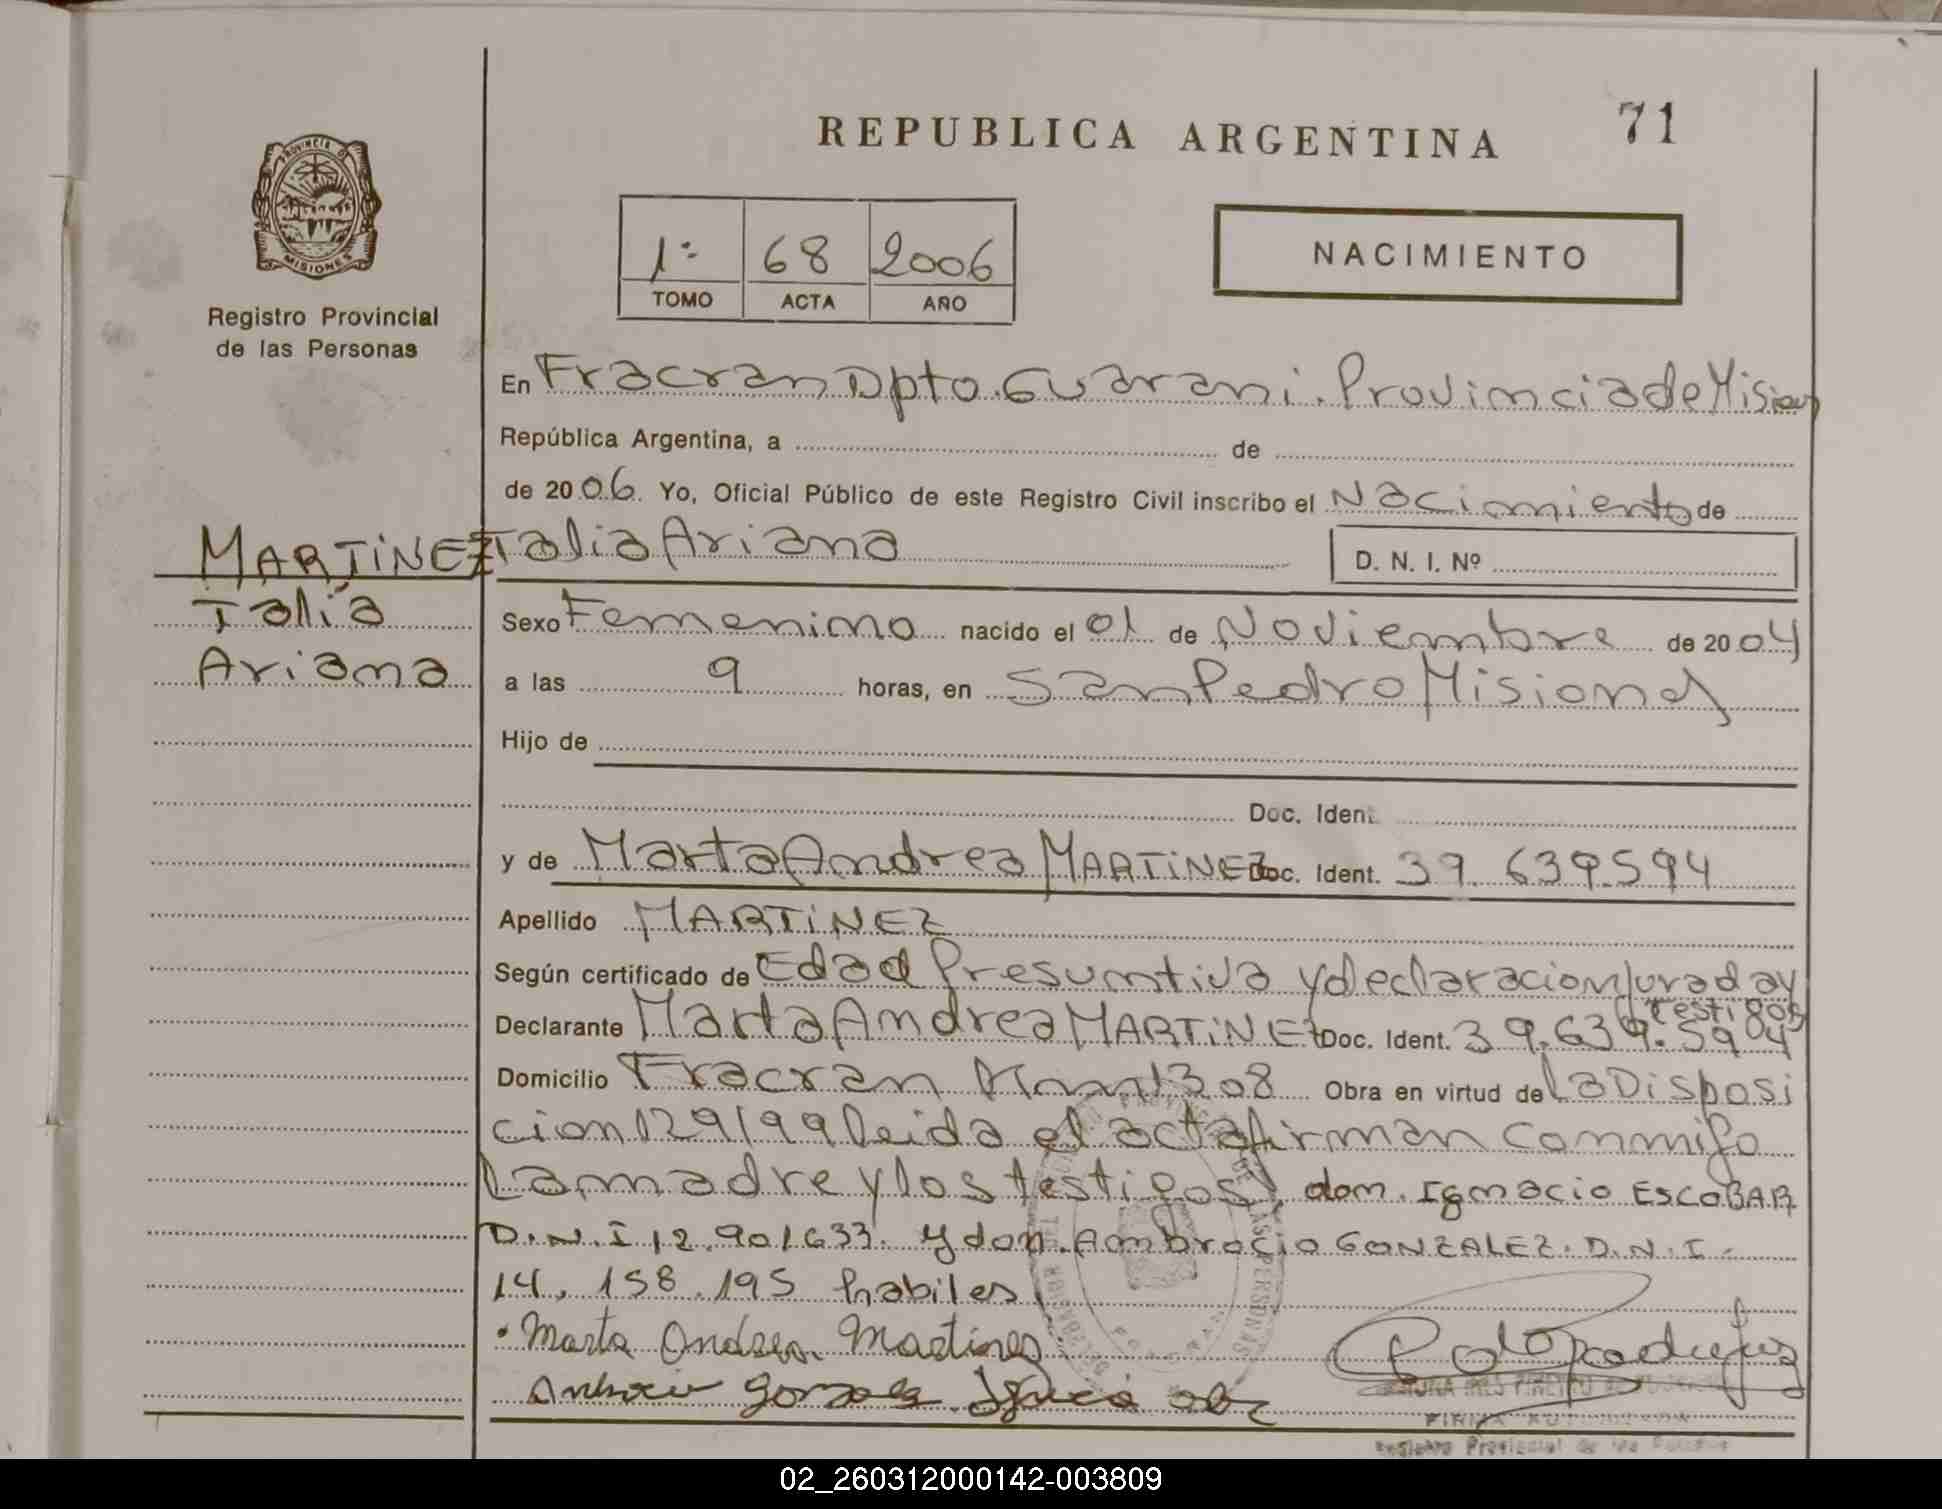 REPUBLICA ARGENTINA
71
PROVINCIA D MISIONES
Registro Provincial
de las Personas
1º 68 2006
TOMO ACTA AÑO
NACIMIENTO
En Fracran Dpto. Guarani. Provincia de Misiones
República Argentina, a de
de 2006. Yo, Oficial Público de este Registro Civil inscribo el Nacimiento de
MARTiNEZ Talia Ariana D. N. I. Nº
Talía
Ariana
Sexo Femenino nacido el 01 de Noviembre de 2004
a las 9 horas, en San Pedro Misiones
Hijo de
Doc. Ident.
y de Marta Andrea MARTiNEZ Doc. Ident. 39.639.594
Apellido MARTiNEZ
Según certificado de Edad Presumtiva y declaracion Jurada y
testigos
Declarante Marta Andrea MARTiNEZ Doc. Ident. 39.639.594
Domicilio Fracran Km 1308 Obra en virtud de la Disposi
cion 129/99 leida el acta firman conmigo
la madre y los testigos, don. Ignacio ESCOBAR
D.N.I 12.901633. y don. Ambrocio GONZALEZ. D.N.I-
14.158.195 habiles
Marta Andrea Martines
Registro Provincial de las
02_260312000142-003809